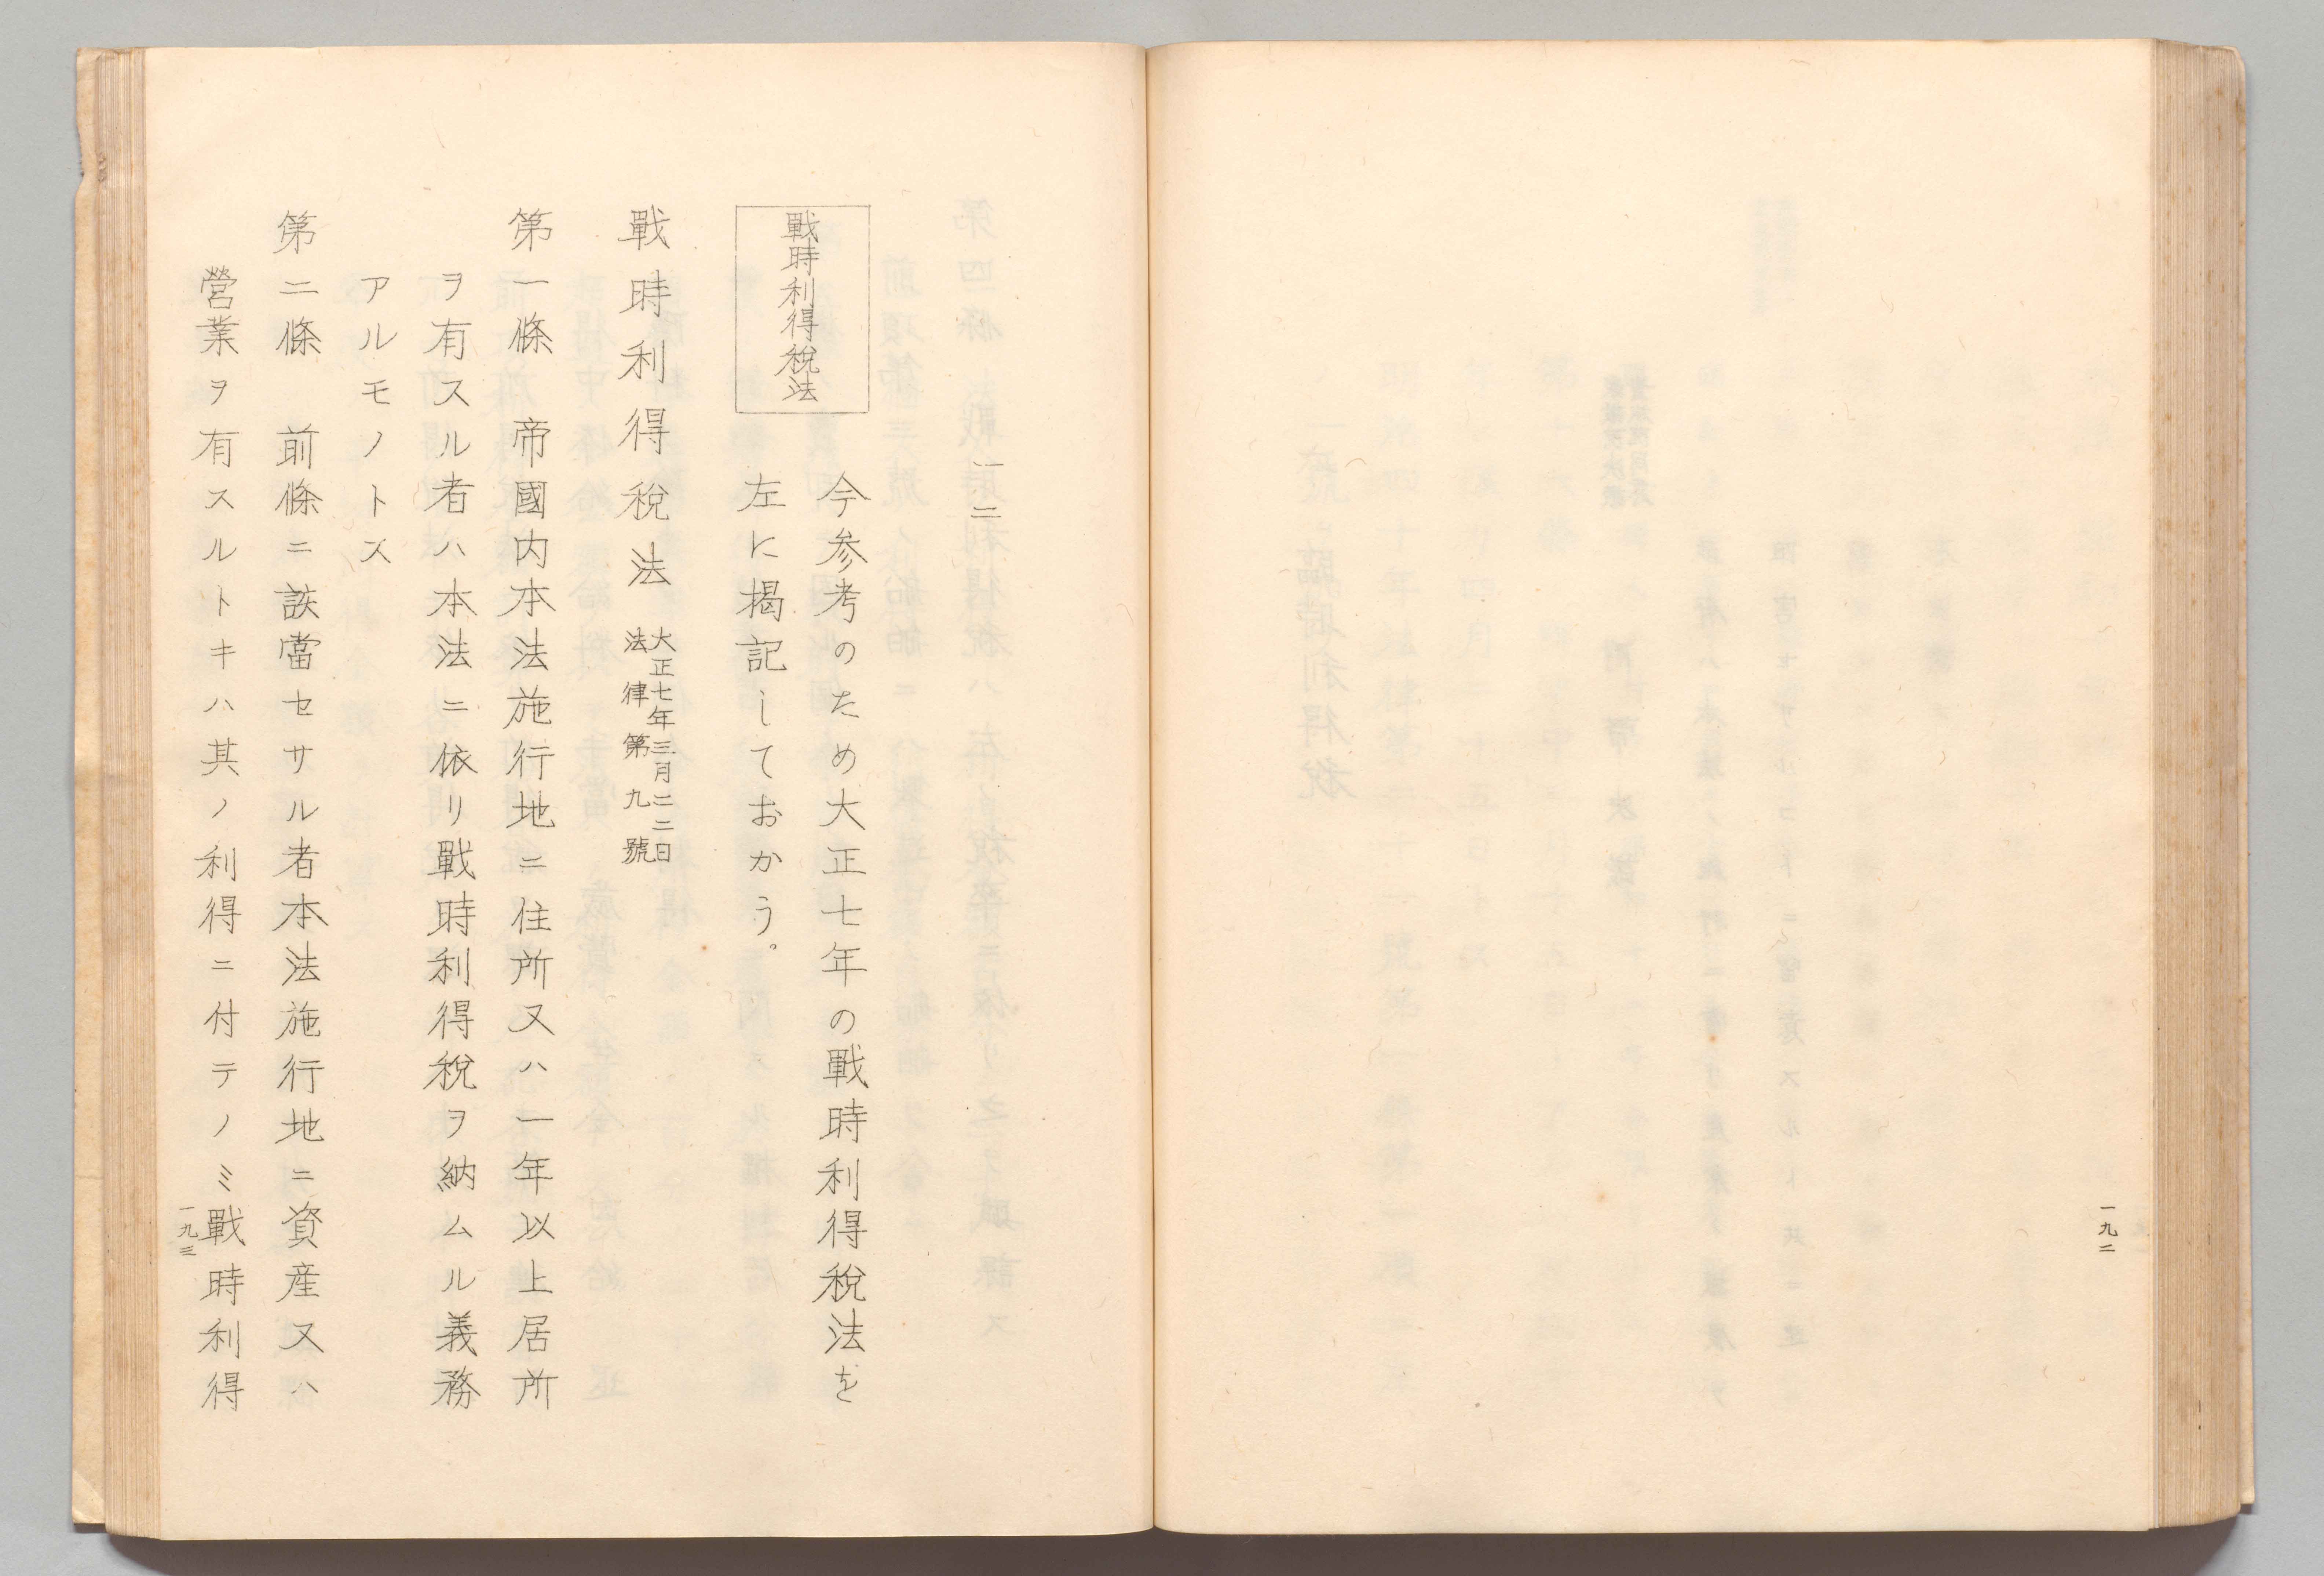 一九二
一二
戰時利得稅法
今参考のため大正七年の戰時利得稅法を
左に揭記しておかう。
戰時利得稅法
大正七年三月二二日
法律第九號
第一條 帝國内本法施行地ニ住所又ハ一年以上居所
ヲ有スル者ハ本法ニ依リ戰時利得稅ヲ納ムル義務
アルモノトス
第二條 前條ニ該當セサル者本法施行地ニ資産又ハ
營業ヲ有スルトキハ其ノ利得ニ付テノミ戰時利得
一九三